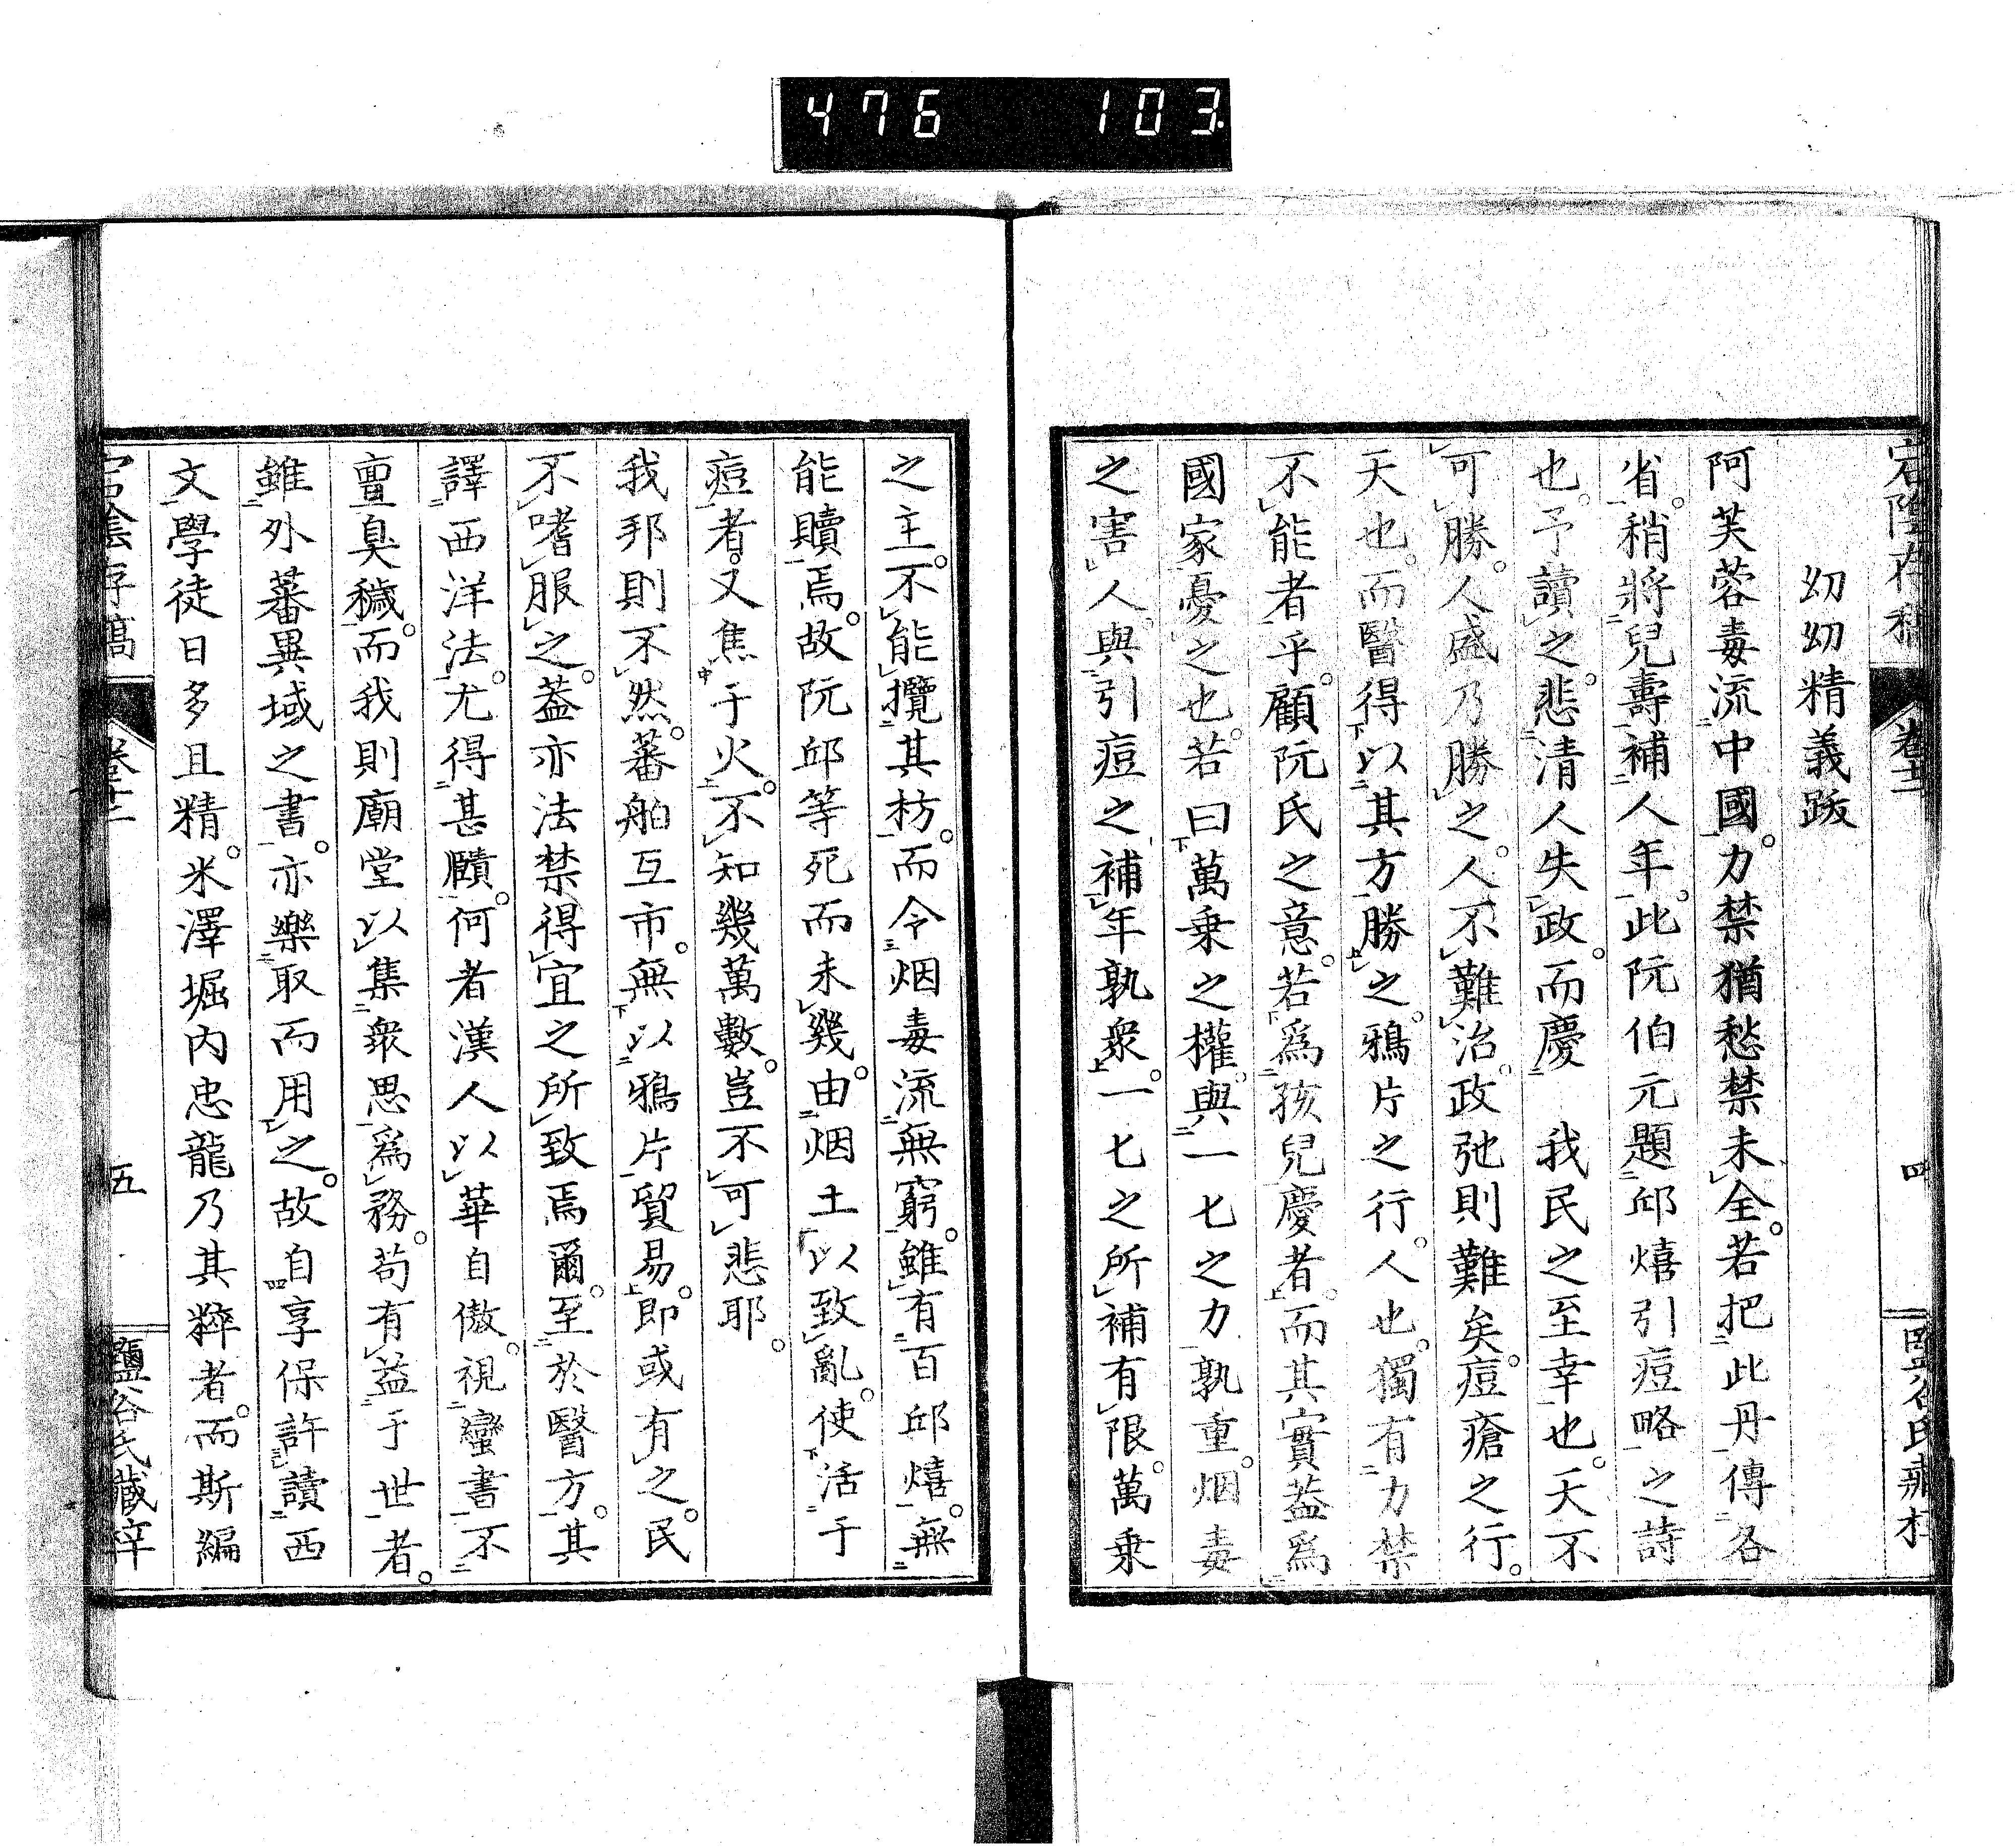 476 103.
宕陰存稿 卷十二 四
幼幼精義跋
阿芙蓉毒流中國。力禁猶愁禁未全。若把此丹傳各
省。稍將兒壽補人年。此阮伯元題邱熺引痘略之詩
也。予讀之。悲清人失政。而慶 我民之至幸也。天不
可勝。人盛乃勝之。人不難治。政弛則難矣。痘瘡之行。
天也。而醫得以其方勝之。鴉片之行。人也。獨有力禁
不能者乎。顧阮氏之意。若爲孩兒慶者。而其實蓋爲
國家憂之也。若曰萬乘之權。與一七之力孰重。烟毒
之害人。與引痘之補年孰衆。一七之所補有限。萬乘
之主。不能攬其枋。而令烟毒流無窮。雖有百邱熺。無
能贖焉。故阮邱等死而未幾。由烟土以致亂。使活于
痘者。又焦于火。不知幾萬數。豈不可悲耶。
我邦則不然。蕃舶互市。無以鴉片貿易。即或有之。民
不嗜服之。蓋亦法禁得宜之所致焉爾。至於醫方。其
譯西洋法。尤得甚賾。何者漢人以華自傲。視蠻書不
亶臭穢。而我則廟堂以集衆思爲務。苟有益于世者。
雖外蕃異域之書。亦樂取而用之。故自享保許讀西
文。學徒日多且精。米澤堀内忠龍乃其粹者。而斯編
宕陰存稿 卷十二 五 鹽谷氏藏梓